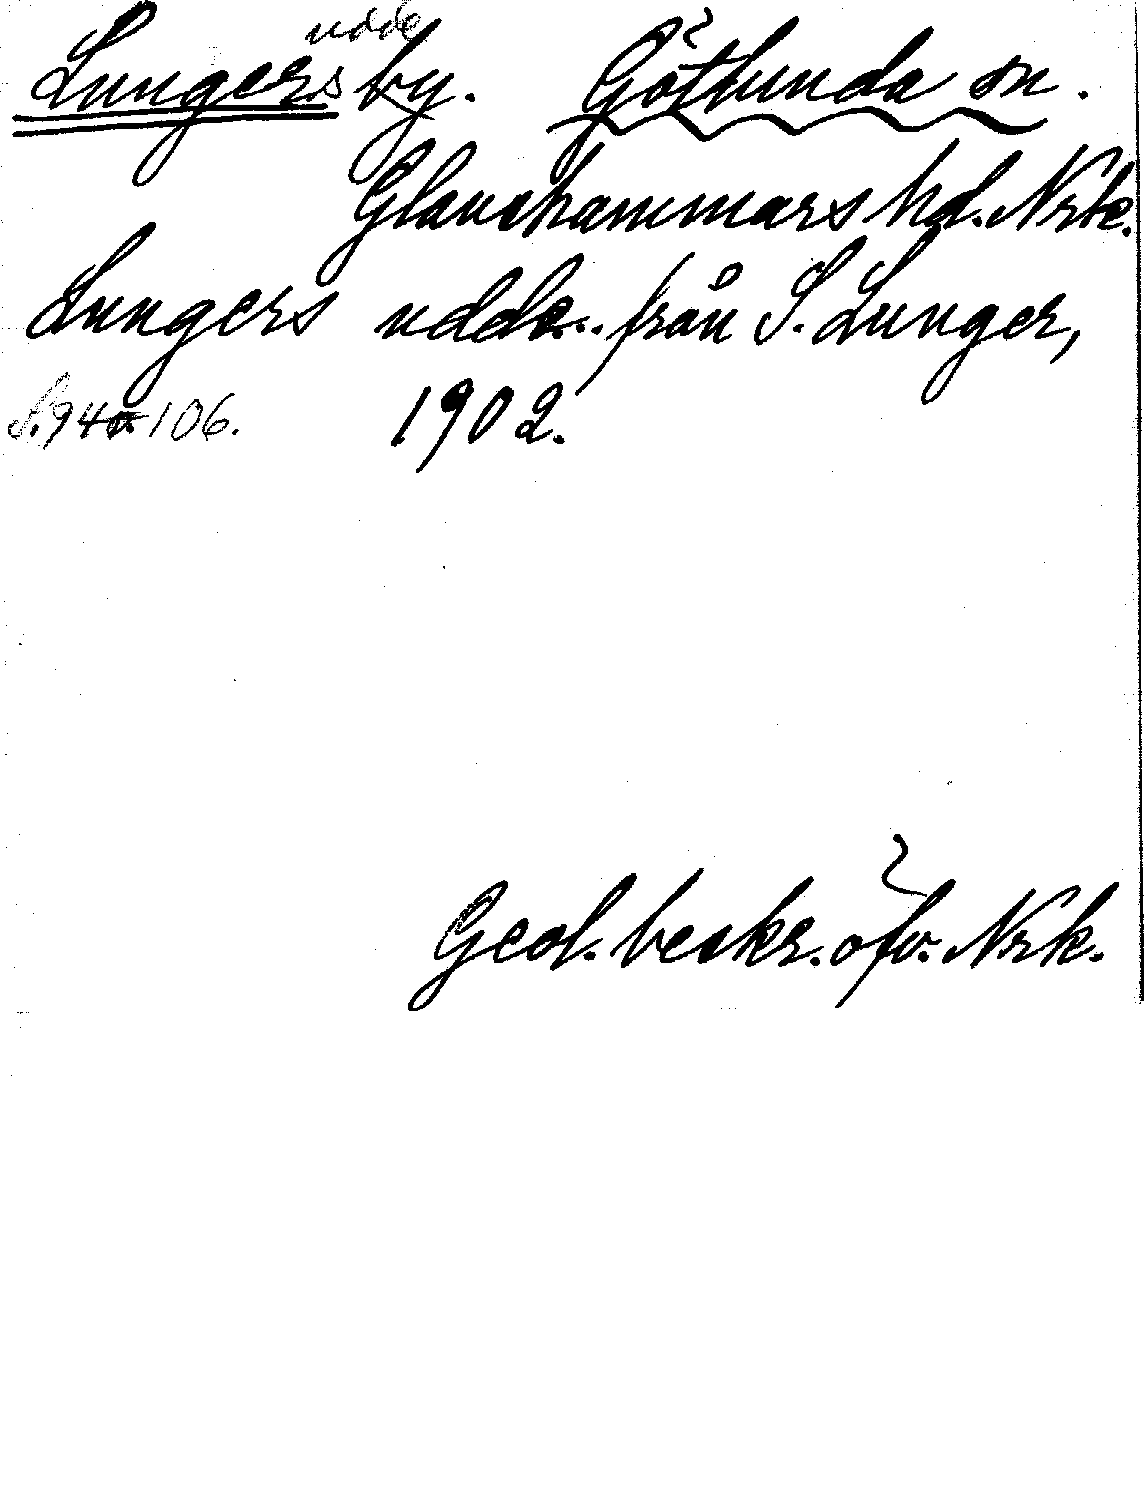 udde
Lungers by. Götlunda sn.
Glanshammars hd. Nrke.
Lungers udde.. från S. Lunger,
S. 94 o 106. 1902.
Geol. beskr. öfv. Nrk.